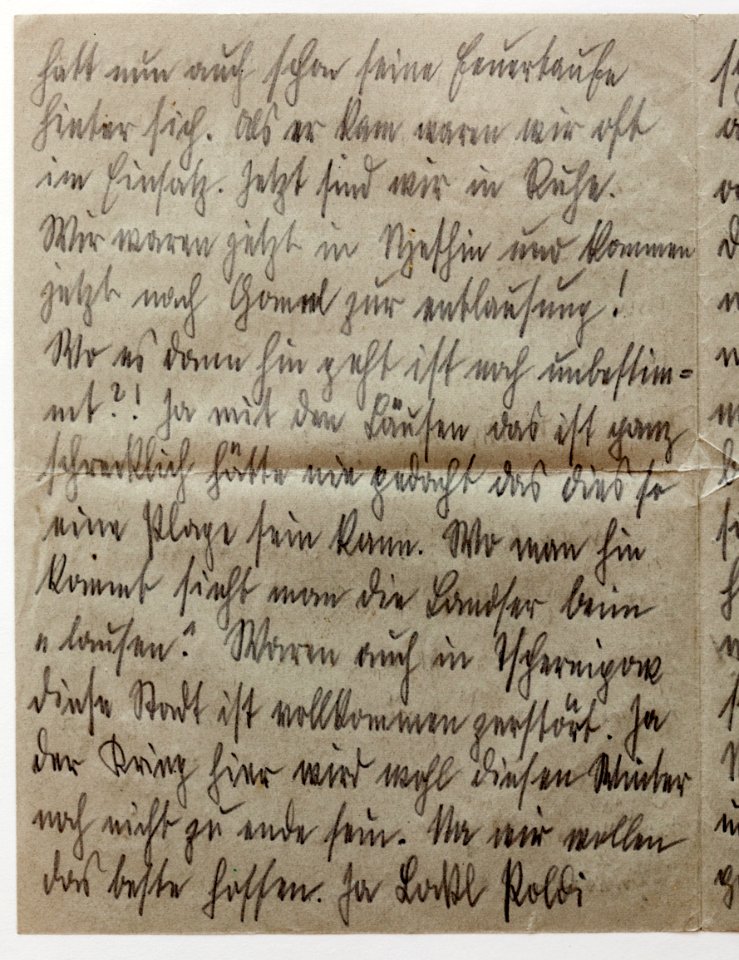 hatt nun auch schon seine Feuertaufe
hinter sich. Als er kam waren wir oft
im Einsatz. Jetzt sind wir in Ruhe.
Wir waren jetzt in Njeshin und kommen
jetzt nach Gomel zur entlausung!
Wo es dann hin geht ist noch unbestim=
mt?! Ja mit den Läusen das ist ganz
schrecklich hätte nie gedacht das dies so
eine Plage sein kann. Wo man hin
kommt sieht man die Landser beim
„lausen“. Waren auch in Tschernigow
diese Stadt ist vollkommen zerstört. Ja
der Krieg hier wird wohl diesen Winter
noch nicht zu ende sein. Na wir wollen
das beste hoffen. Ja Poldi